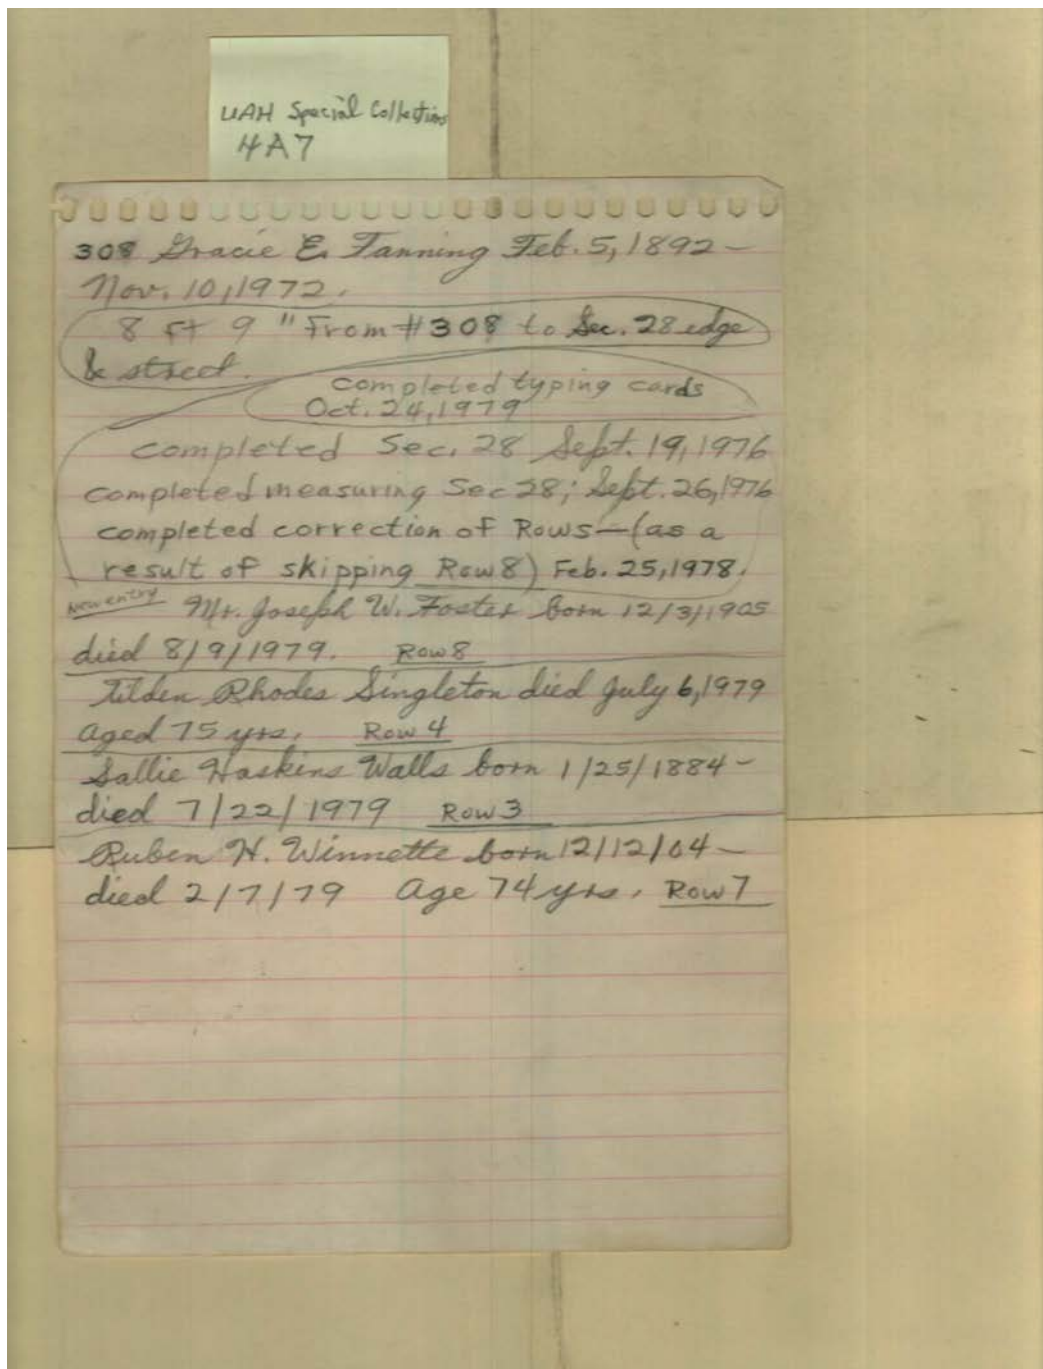 UAH Special Collections
4A7
308 Gracie E. Fanning Feb. 5, 1892 –
Nov. 10, 1972.
8 ft 9 " From #308 to Sec. 28 edge
& street.
completed typing cards
Oct. 24, 1979
completed Sec. 28 Sept. 19, 1976
completed measuring Sec 28; Sept. 26, 1976
completed correction of Rows — (as a
result of skipping Row 8) Feb. 25, 1978.
New entry Mr. Joseph W. Foster born 12/3/1905
died 8/9/1979. Row 8
Tilden Rhodes Singleton died July 6, 1979
aged 75 yrs. Row 4
Sallie Haskins Walls born 1/25/1884 –
died 7/22/1979 Row 3
Ruben H. Winnette born 12/12/04 –
died 2/7/79 Age 74 yrs. Row 7